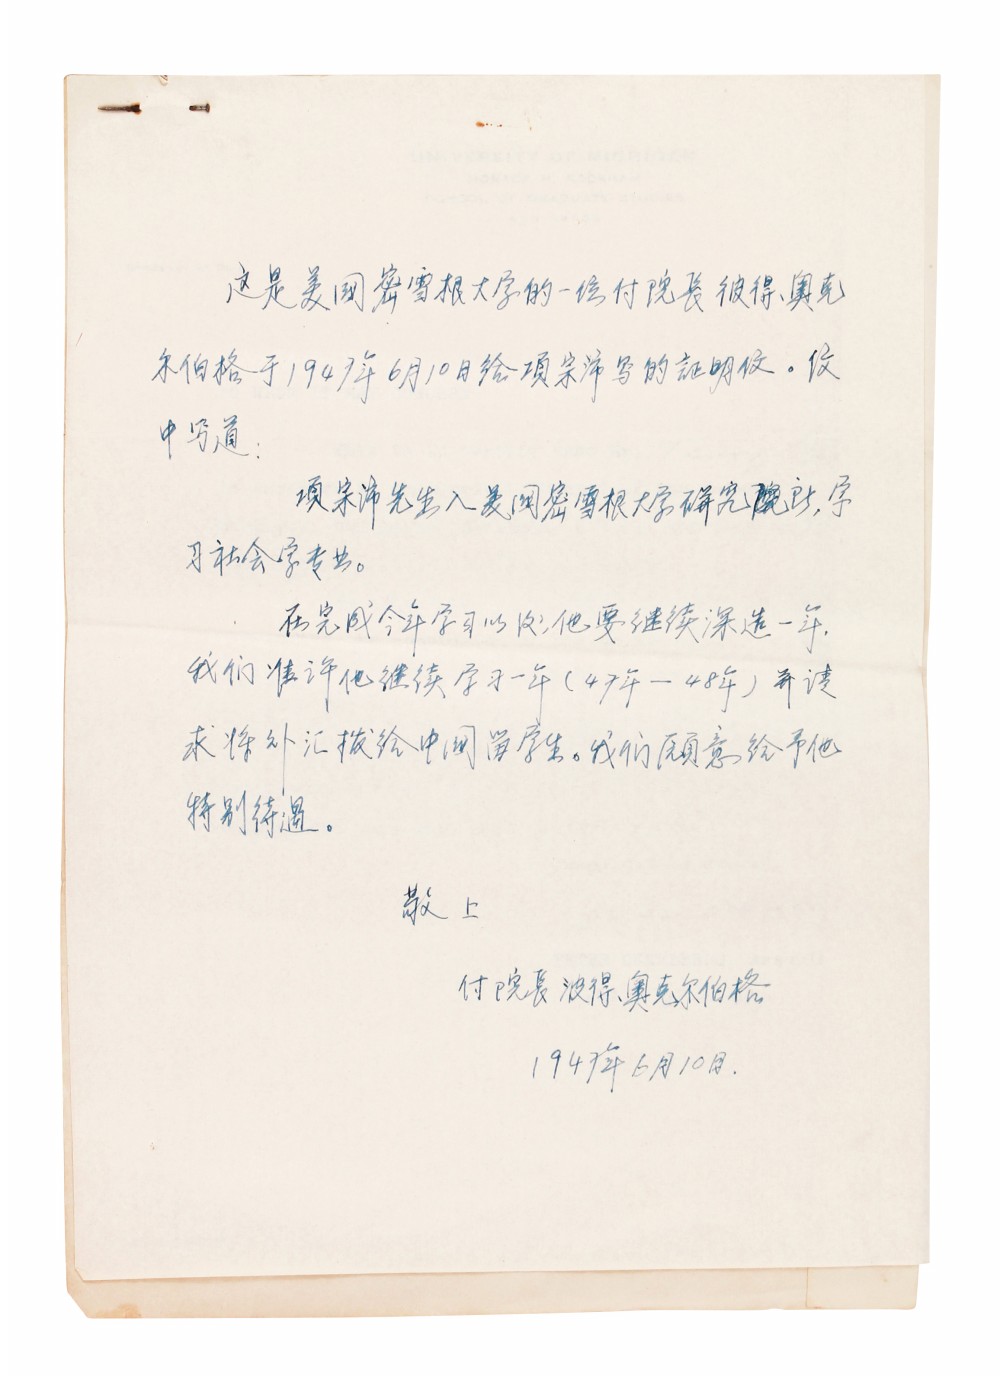 这是美国密雪根大学的一位付院長彼得、奧克
尔伯格于1947年6月10日给項宗沛写的証明信。信
中写道:
項宗沛先生入美国密雪根大学研究院,学
习社会学专业。
在完成今年学习以后,他要继续深造一年,
我们准许他继续学习一年(47年—48年)并请
求将外汇拨给中国留学生。我们願意给予他
特别待遇。
敬上
付院長 彼得、奧克尔伯格
1947年6月10日.